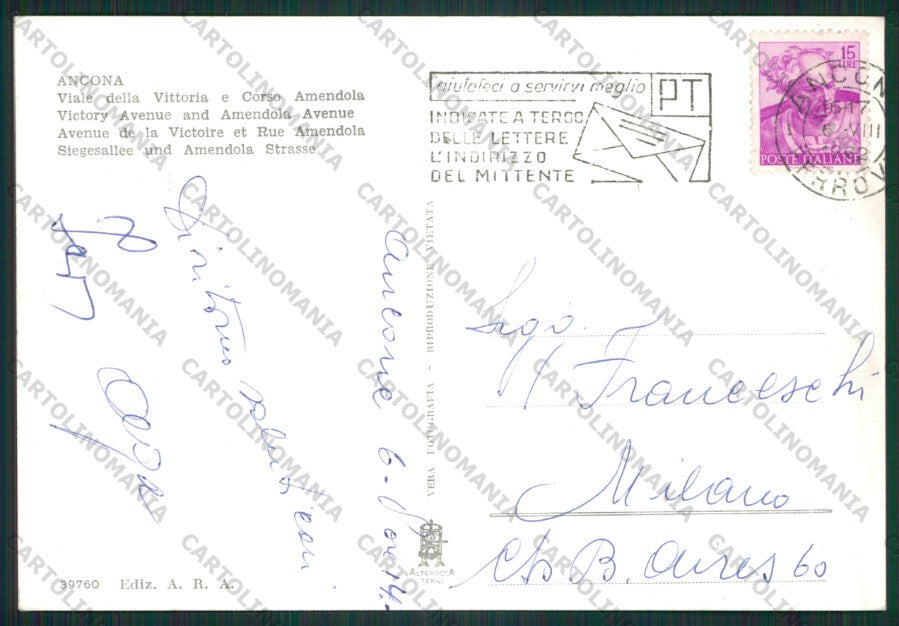 ANCONA
Viale della Vittoria e Corso Amendola
Victory Avenue and Amendola Avenue
Avenue de la Victoire et Rue Amendola
Siegesallee und Amendola Strasse
aiutateci a servirvi meglio
PT
INDICATE A TERGO
DELLE LETTERE
L'INDIRIZZO
DEL MITTENTE
15
LIRE
POSTE ITALIANE
ANCONA
16-17
6-VIII
1962
FERROV
Ancona 6-8 ore 14.
VERA FOTOGRAFIA - RIPRODUZIONE VIETATA
Sig.
Franceschi
Milano
C/so B. Aires 60
ALTEROCCA
TERNI
39760 Ediz. A. R. A.
CARTOLINOMANIA